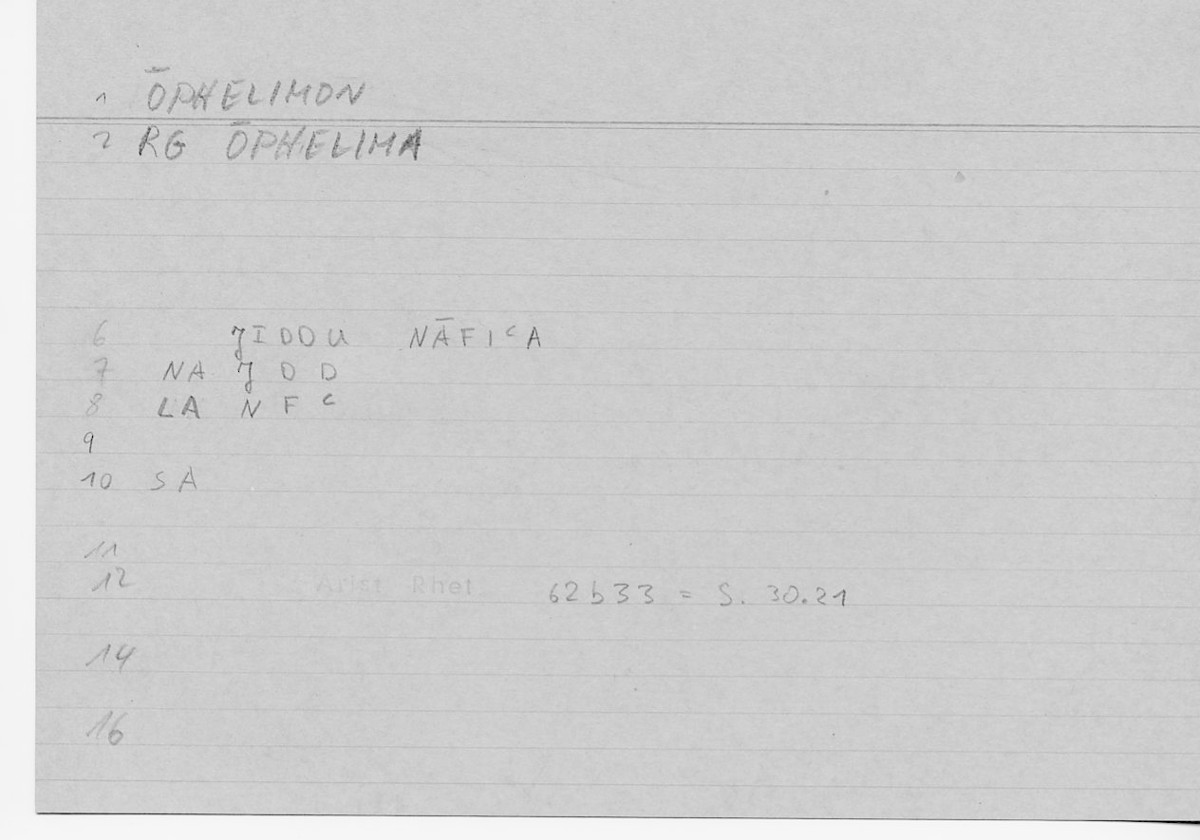 1 ŌPHELIMON
2 RG ŌPHELIMA
6 ɈIDDU NĀFIᶜA
7 NA Ɉ D D
8 LA N F ᶜ
9
10 SA
11
12 Arist Rhet 62b33 = S. 30.21
14
16